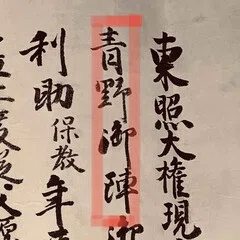 東照大権現
青野御陣御
利助保教年